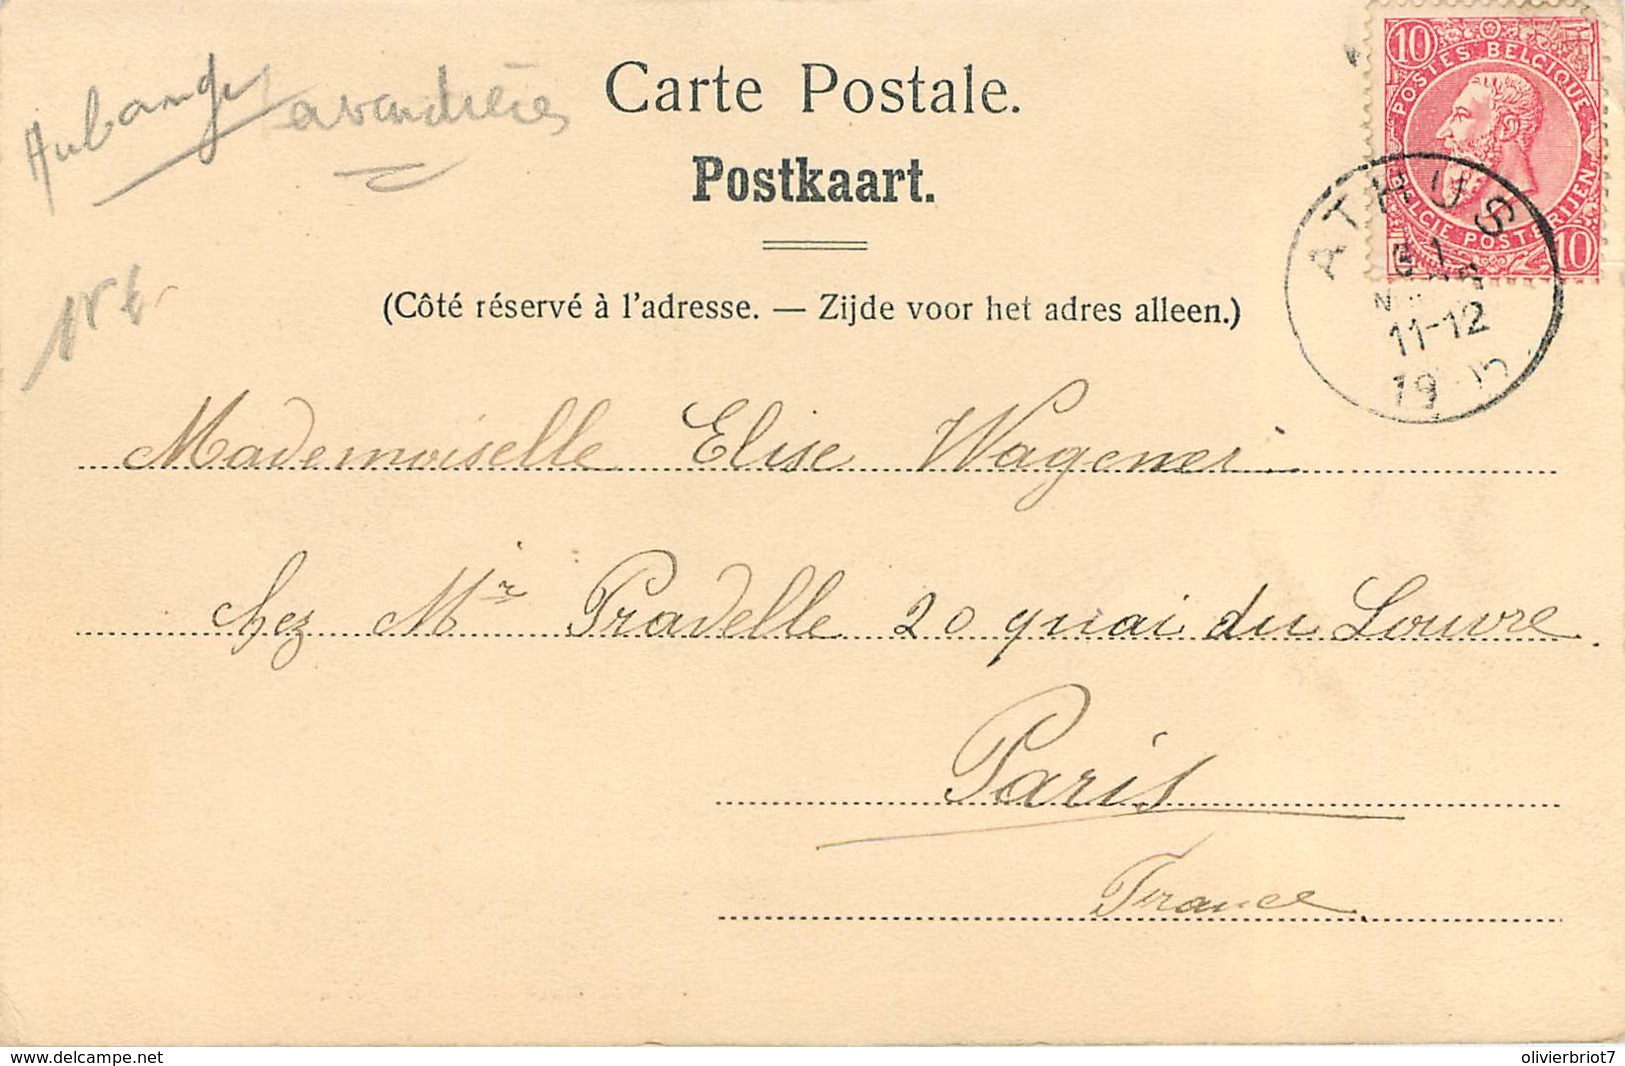 Aubange
Lavandières
Carte Postale.
Postkaart.
(Côté réservé à l'adresse. — Zijde voor het adres alleen.)
10 10
POSTES BELGIQUE
BELGIE POSTERIJEN
10
ATHUS
11-12
19
Mademoiselle Elise Wagener
chez Mr Pradelle 20 quai du Louvre.
Paris
France
www.delcampe.net
olivierbriot7